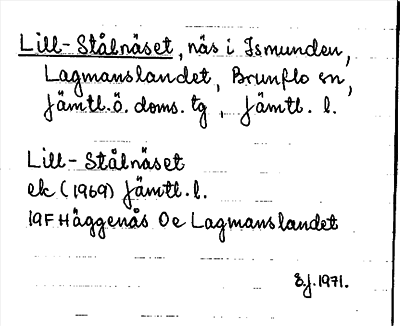 Lill-Stålnäset, näs i Ismunden,
Lagmanslandet, Brunflo sn,
Jämtl.ö. doms. tg, Jämtl. l.
Lill-Stålnäset
ek (1969) Jämtl. l.
19F Häggenås Oe Lagmanslandet
S.J. 1971.